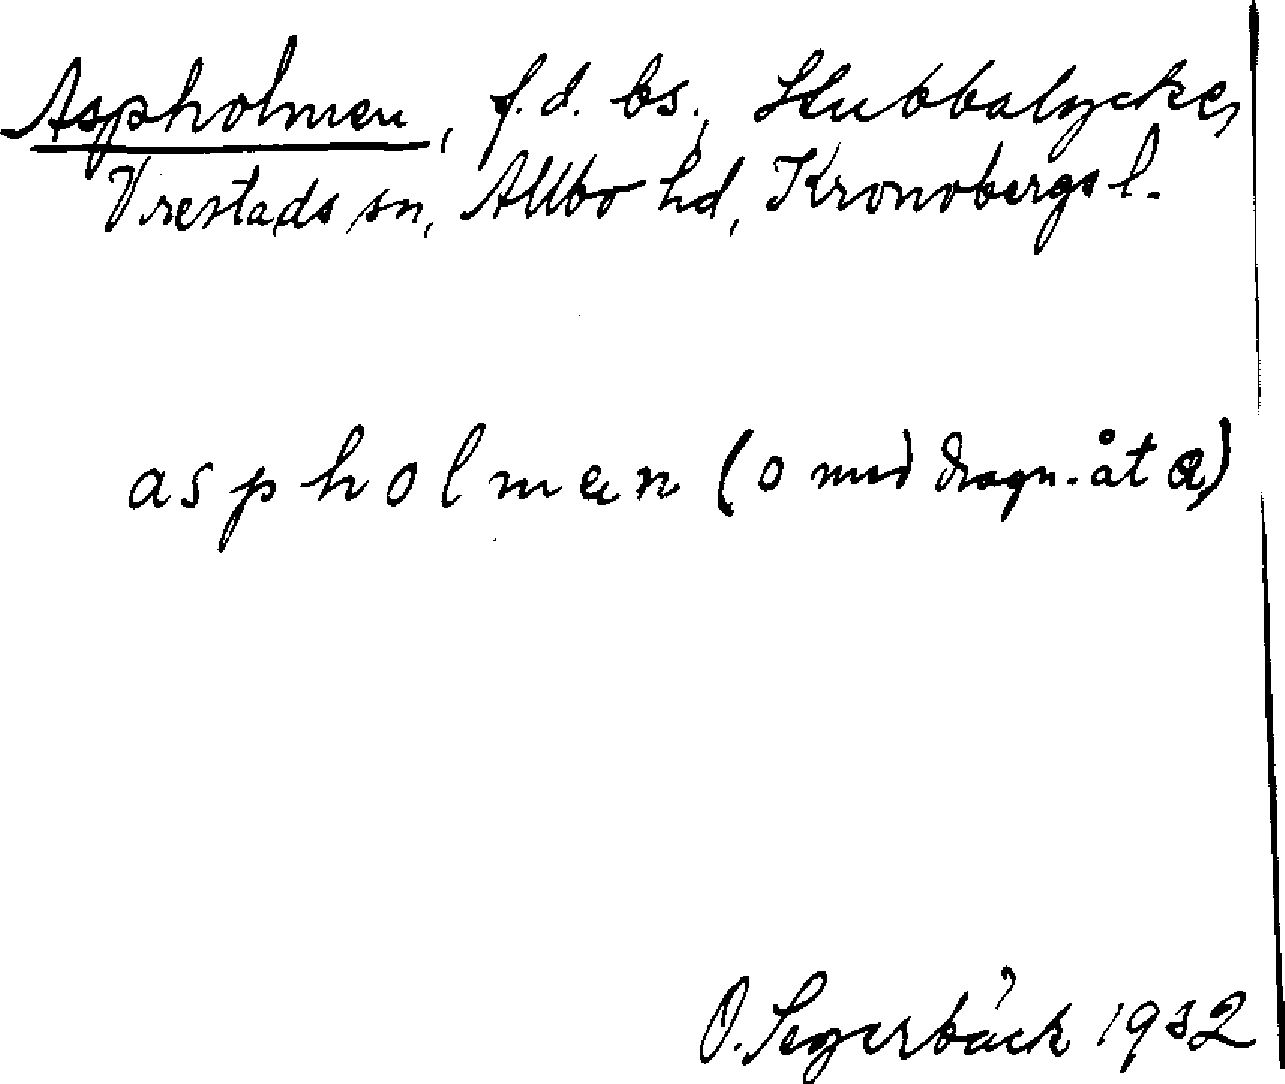 Aspholmen, f.d. bs., Stubbalycke,
Virestads sn, Allbo hd, Kronobergs l.
aspholmen (o med dragn. åt a)
O. Segerbäck 1932